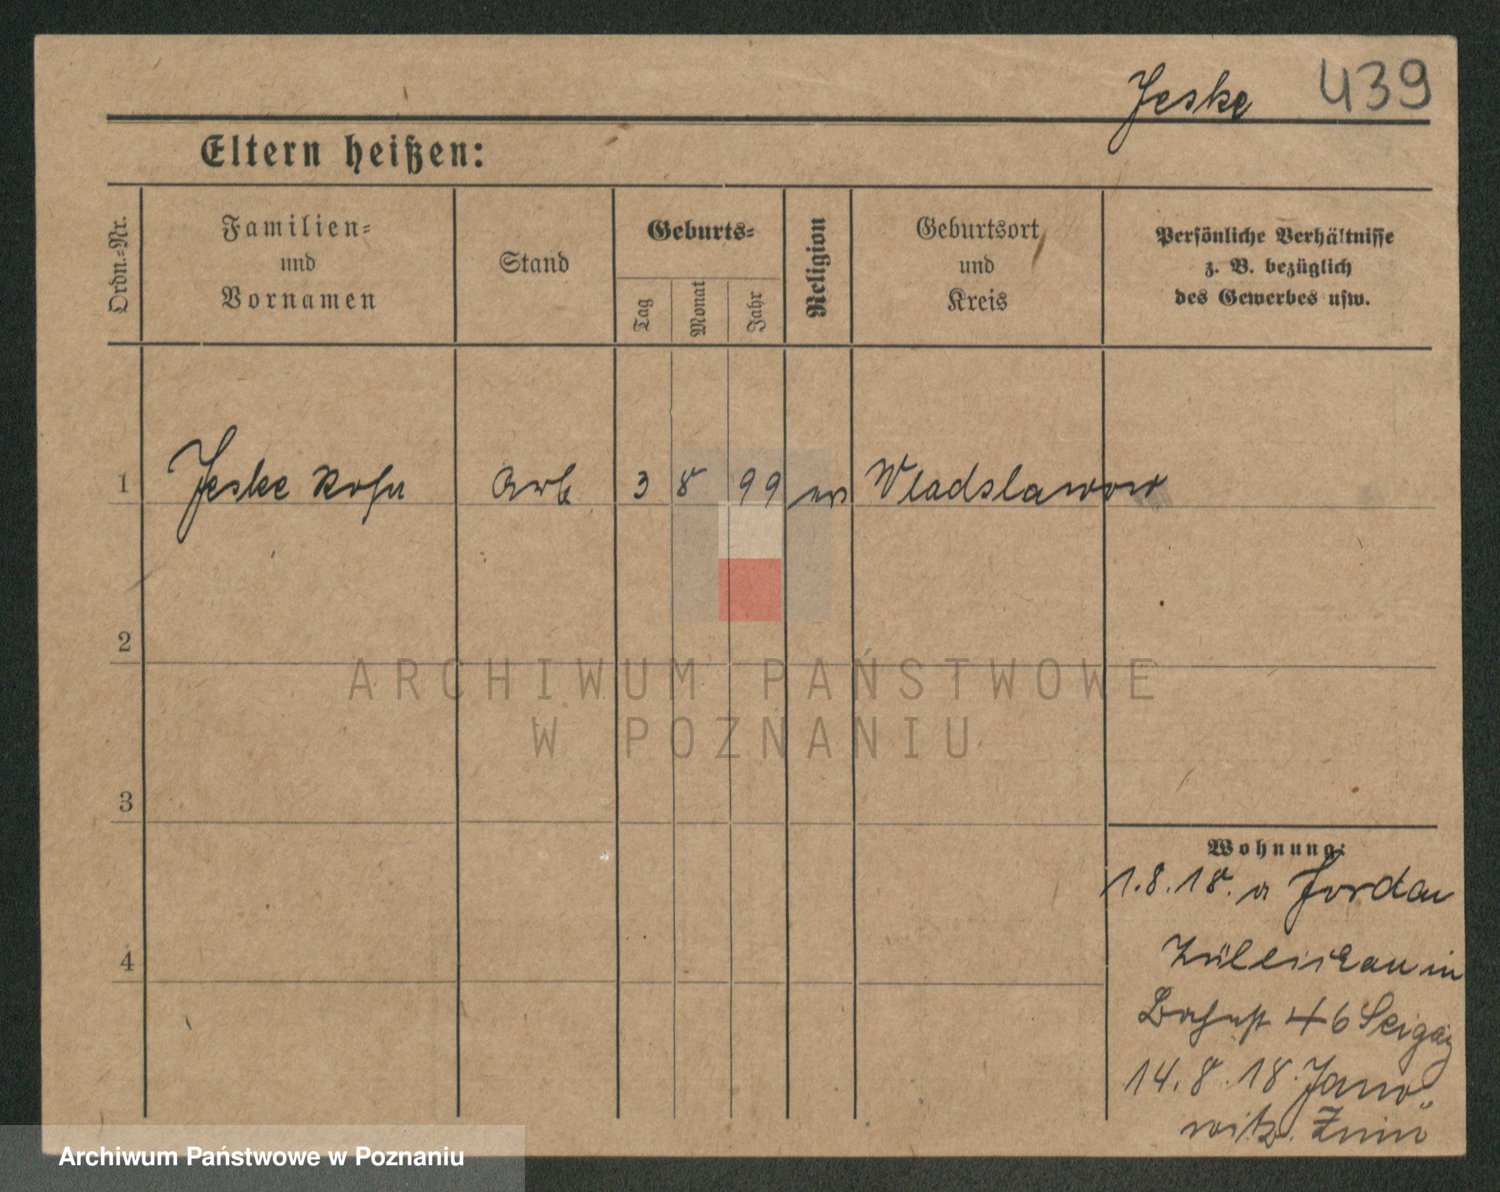 Jeske 439
Eltern heißen:
Ordn.-Nr.
Familien-
und
Vornamen
Stand
Geburts-
Tag
Monat
Jahr
Religion
Geburtsort
und
Kreis
Persönliche Verhältnisse
z. B. bezüglich
des Gewerbes usw.
1 Jeske Rosa Arb 3 8 99 ev Wladslawow
2
3
4
Wohnung:
1.8.18. a Jordan
Züllichau in
Bahnst 46
14.8.18. Jano-
witz. Znin
ARCHIWUM PAŃSTWOWE
W POZNANIU
Archiwum Państwowe w Poznaniu